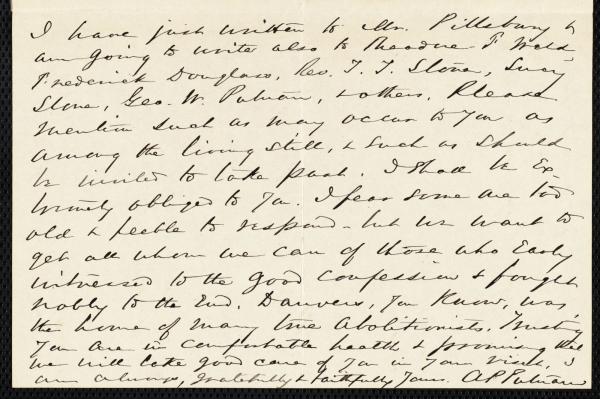 I have just written to Mr. Pillsbury &
am going to write also to Theodore F Weld,
Frederick Douglass, Rev. T. T. Stone, Lucy
Stone, Geo. W. Putnam, & others. Please
mention such as may occur to you as
among the living still, & such as should
be invited to take part. I shall be Ex-
tremely obliged to you. I fear some are too
old & feeble to respond - but we want to
get all whom we can of those who Early
witnessed to the good confession & fought
nobly to the End. Danvers, you know, was
the home of many true Abolitionists. Trusting
you are in comfortable health & promising that
we will take good care of you in your visit, I
am always, gratefully & faithfully Yours. A P Putnam